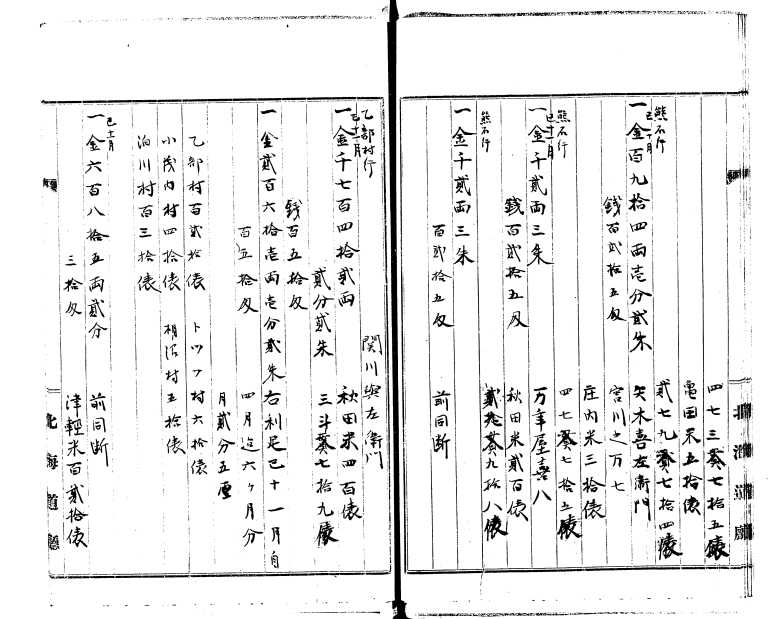 四七三葵七十五俵
亀田米五拾俵
貳七九葵七拾四俵
熊石行
巳十月
一金百九拾四両壱分貳朱
矢木喜左衛門
銭百貳拾五匁
宮川之万七
庄内米三拾俵
熊石行
巳十一月
四七葵七拾五俵
一金千貳両三朱
万年屋喜八
銭百貳拾五匁
秋田米貳百俵
熊石行
葵九拾八俵
一金千貳両三朱
百貳拾五匁
前同断
乙部村行
巳十一月
関川與左衛門
一金千七百四拾貳両
秋田米四百俵
貳分貳朱
三斗葵七拾九俵
銭百五拾匁
一金貳百六拾壱両壱分貳朱右利足巳十一月自
百五拾匁
四月迄六ヶ月分
月貳分五厘
乙部村百貳拾俵
トツフ村六拾俵
小茂内村四拾俵
相沼村五拾俵
泊川村百三拾俵
巳十一月
一金六百八拾五両貳分
前同断
三拾匁
津軽米百貳拾俵
北海道廳
北海道廳